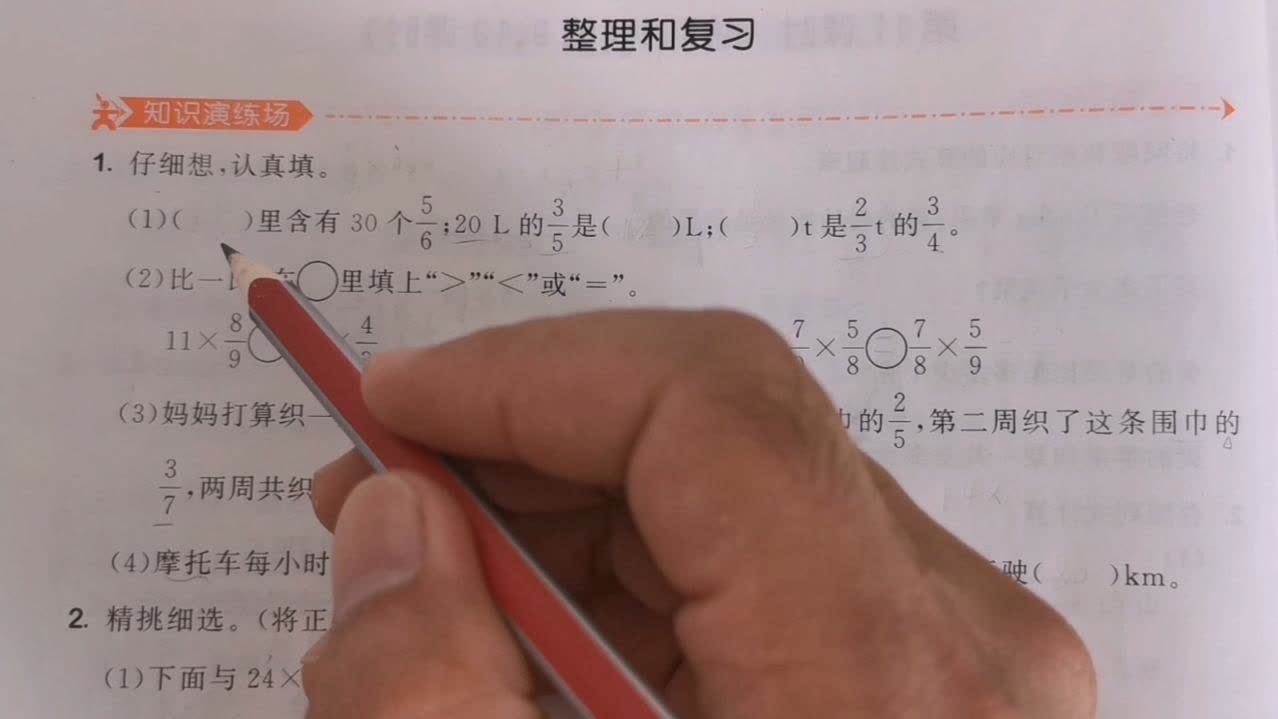 整理和复习
知识演练场
1. 仔细想,认真填。
(1)(    )里含有 30 个 5/6;20 L 的 3/5 是(    )L;(    )t 是 2/3 t 的 3/4。
(2)比一 里填上“>”“<”或“=”。
11× 8/9 ○ × 4/ 7/ × 5/8 ○ 7/8 × 5/9
(3)妈妈打算织一 的 2/5,第二周织了这条围巾的
3/7,两周共织
(4)摩托车每小时 驶(    )km。
2. 精挑细选。(将正
(1)下面与 24×